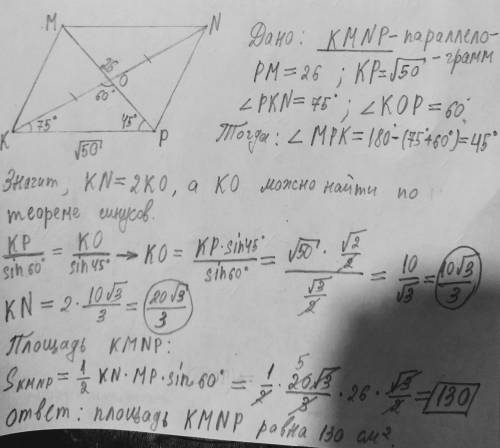 M
N
26
O
60°
K
75°
45°
P
√50
Дано: KMNP - параллело-
грамм
PM = 26 ; KP = √50
∠PKN = 75° ; ∠KOP = 60°
Тогда: ∠MPK = 180° - (75° + 60°) = 45°
Значит, KN = 2KO, а KO можно найти по
теореме синусов.
KP/sin60° = KO/sin45° → KO = KP·sin45°/sin60° = (√50 · √2/2)/(√3/2) = 10/√3 = 10√3/3
KN = 2 · 10√3/3 = 20√3/3
Площадь KMNP:
S KMNP = 1/2 KN · MP · sin60° = 1/2 · 20√3/3 · 26 · √3/2 = 130
5
ответ: площадь KMNP равна 130 см²